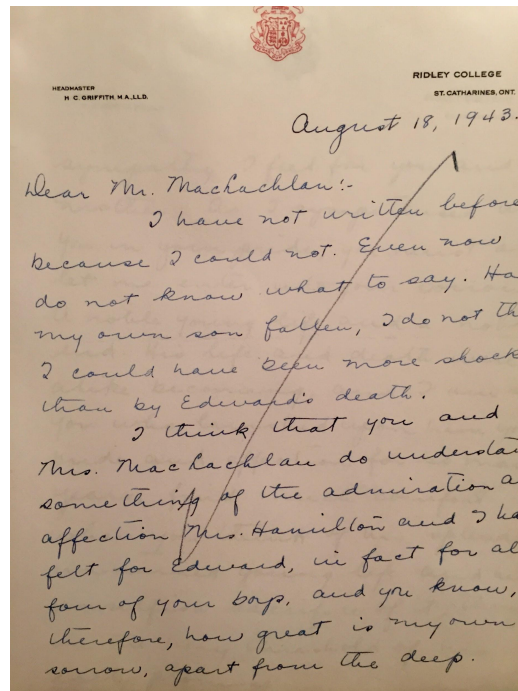 HEADMASTER
H. C. GRIFFITH, M.A., LL.D.
RIDLEY COLLEGE
ST. CATHARINES, ONT.
August 18, 1943.
Dear Mr. MacLachlan:-
I have not written before
because I could not. Even now
do not know what to say. Ha
my own son fallen, I do not th
I could have been more shock
than by Edward's death.
I think that you and
Mrs. MacLachlan do understa
something of the admiration a
affection Mrs. Hamilton and I ha
felt for Edward, in fact for al
four of your boys, and you know,
therefore, how great is my own
sorrow, apart from the deep.